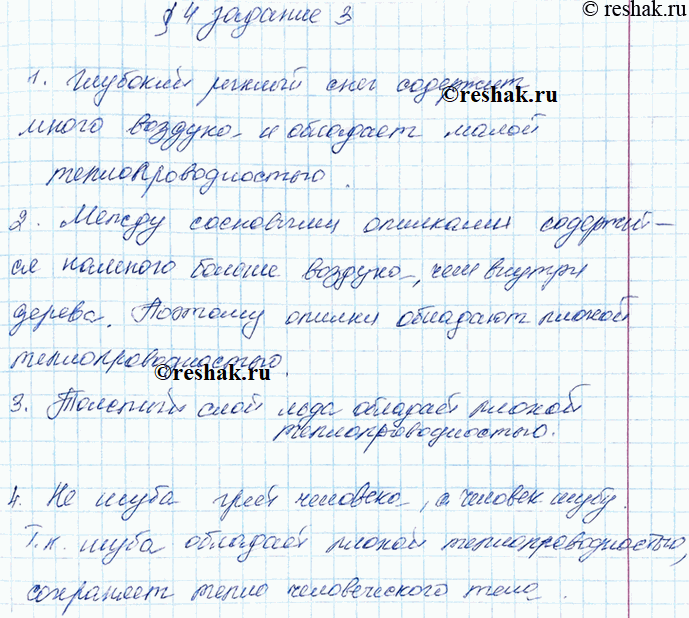 © reshak.ru
§ 4 задание 3
1. Глубокий рыхлый снег содержит
©reshak.ru
много воздуха и обладает малой
теплопроводностью.
2. Между сосновыми опилками содержит-
ся намного больше воздуха, чем внутри
дерева. Поэтому опилки обладают плохой
теплопроводностью.
©reshak.ru
3. Толстый слой льда обладает плохой
теплопроводностью.
4. Не шуба греет человека, а человек шубу.
Т.к. шуба обладает плохой теплопроводностью,
сохраняет тепло человеческого тела.